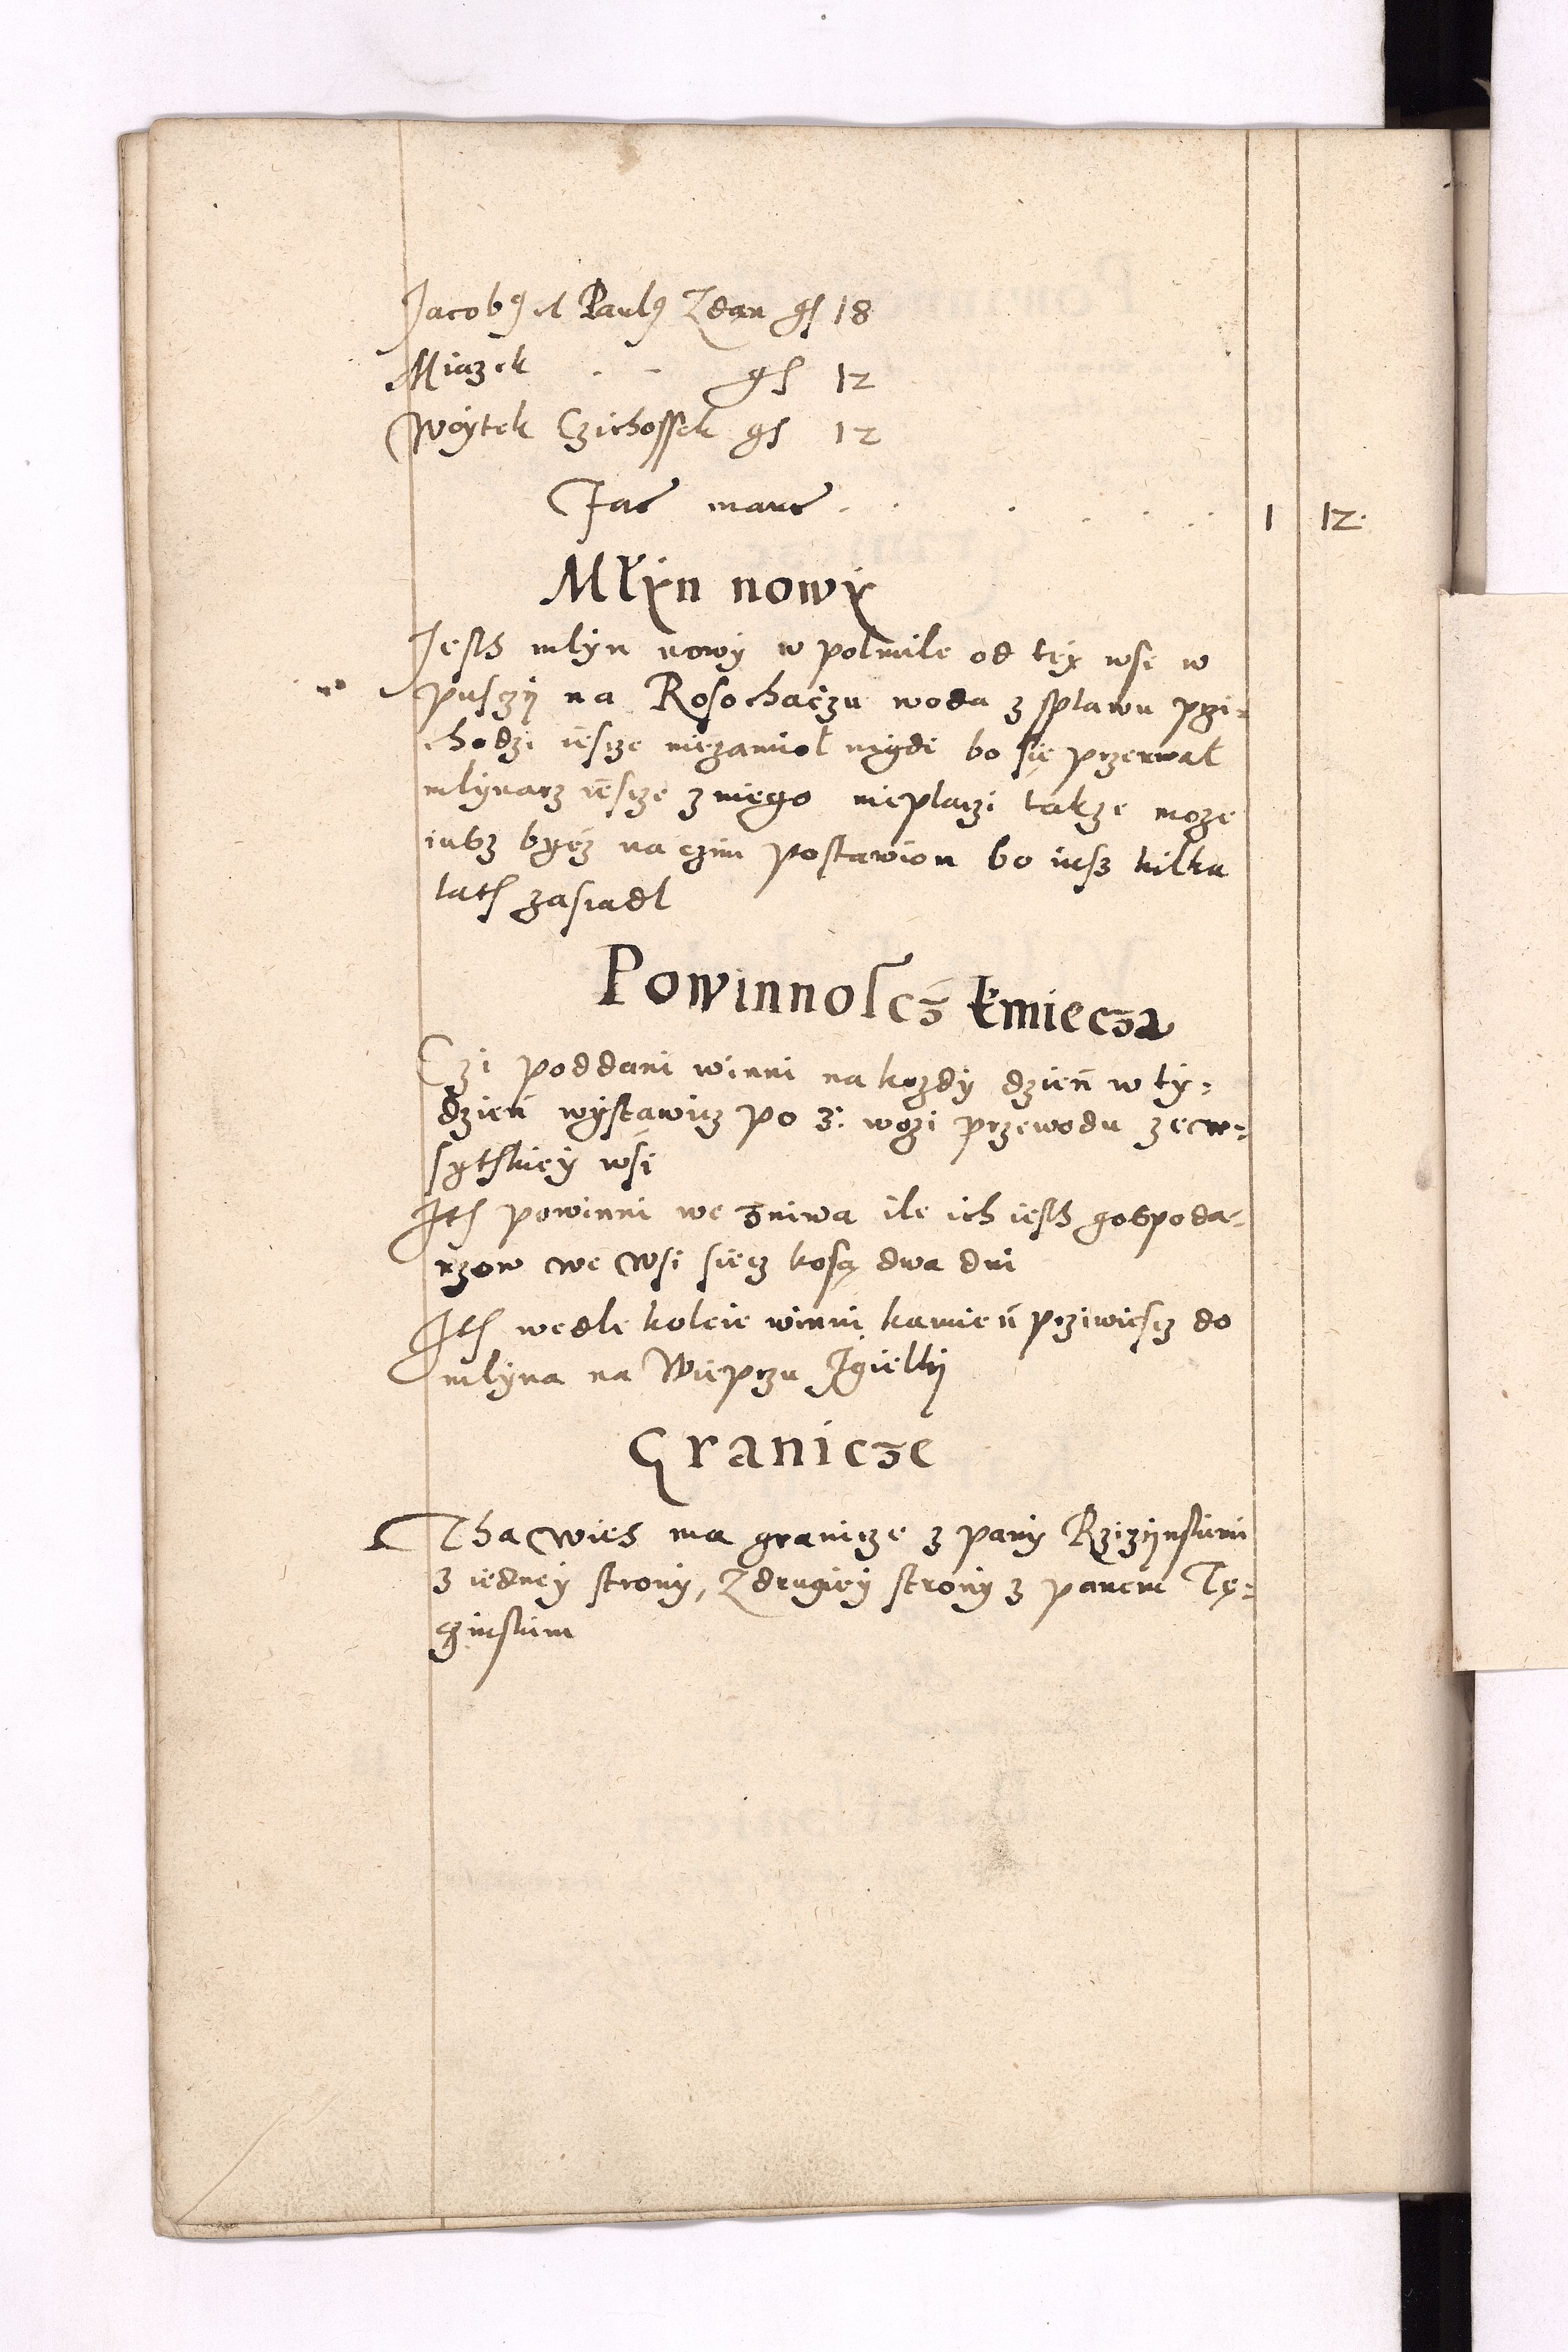 Jacobꝰ et Paulꝰ Zdan gs 18
Miazek . . gs 12
Woytek Czichossek gs 12
Fac marc . . . . . . 1 12.
Młÿn nowÿ
Jesth mlyn nowÿ w polmile od teÿ wse w
pusczÿ na Rosochaczu woda z splawu przi=
chodzi iescze niezamiol nigdi bo sie przerwał
mlynarz iescze z niego nieplaczi takze moze
iusz bycz na czim postawion bo iusz kilka
lath zasiadl
Powinnoscz kmiecza
Czi poddani winni na kozdy dzien w ty=
dzien wystawicz po 3: wozi przewodu ze w=
sythkiey wsi
Ith powinni we zniwa ile ich iesth gospoda=
rzow we wsi siecz kosą dwa dni
Ith wedle koleie winni kamień prziwiescz do
mlyna na Wieprzu Jgielkÿ
Granicze
Tha wies ma granicze z pany Rzizÿnskimi
z iedney strony, Z drugiey strony z panem Tę=
czinskim